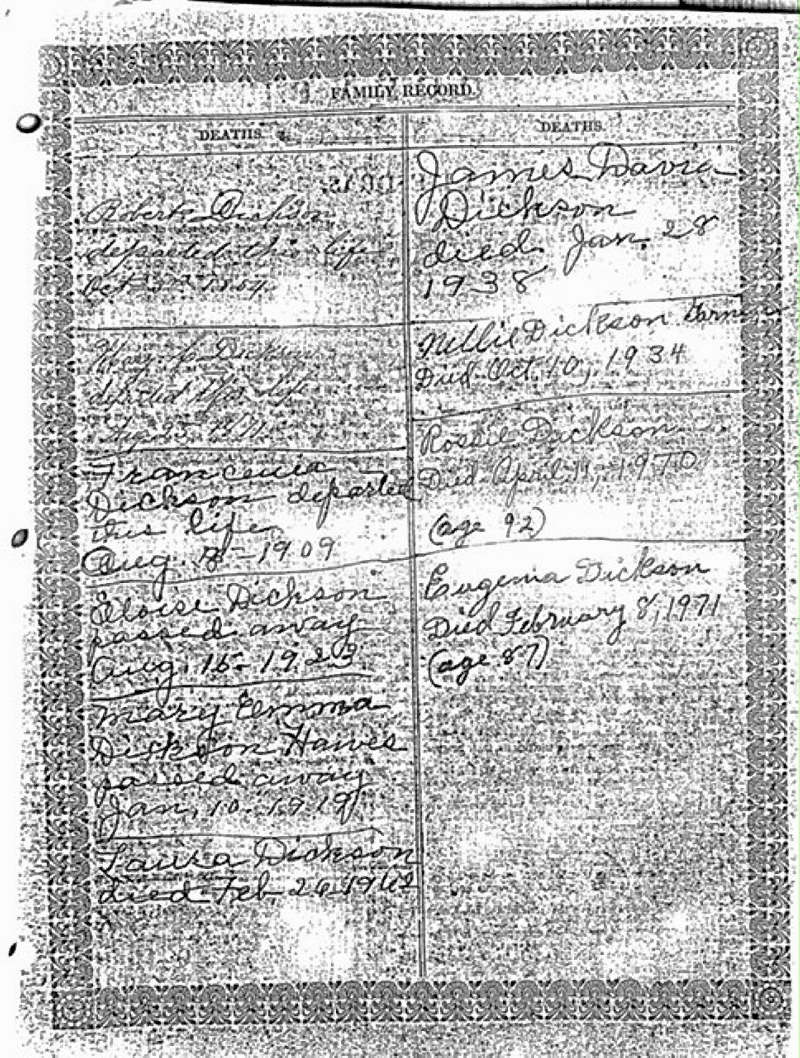 FAMILY RECORD.
DEATHS.
Robert Dickson
departed this life
Oct
Dickson
departed this life
Aug 25
Francenia
Dickson departed
this life
Aug. 8 - 1909
Eloise Dickson
passed away
Aug. 15 - 1923
Mary Emma
Dickson Hawes
passed away
Jan, 10 - 1919
Laura Dickson
died Feb. 26 1942
DEATHS.
James David
Dickson
died Jan. 28
1938
Nellie Dickson
Died Oct. 10, 1934
Rossie Dickson
Died April 11, 1970
(age 92)
Eugenia Dickson
Died February 8, 1971
(age 87)